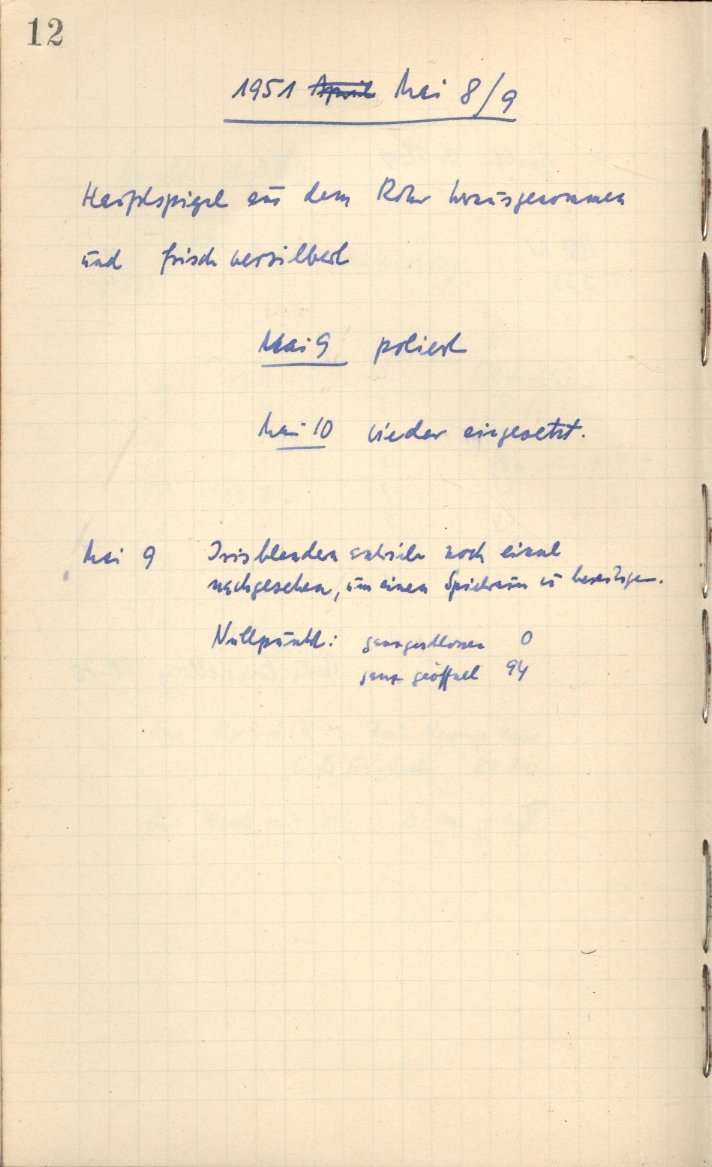 12
1951 April Mai 8/9
Hauptspiegel aus dem Rohr herausgenommen
und frisch versilbert
Mai 9 poliert
Mai 10 wieder eingesetzt.
Mai 9 Irisblenden noch einmal
nachgesehen, um einen Spielraum zu beseitigen.
Nullpunkt: ganz geschlossen 0
ganz geöffnet 94